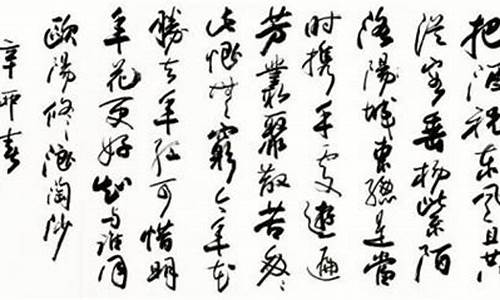 把酒祝东风且共
從容垂杨紫陌
洛陽城東總是當
时携手處遊遍
芳叢聚散苦匆々
此恨無窮今年花
勝去年红可惜明
年花更好知与谁同
歐陽修浪淘沙
辛卯春